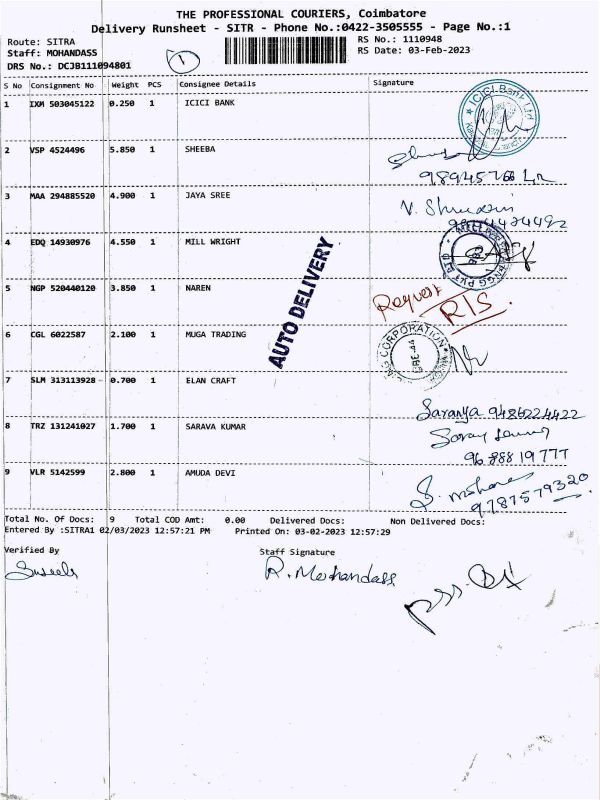 THE PROFESSIONAL COURIERS, Coimbatore
Delivery Runsheet - SITR - Phone No.:0422-3505555 - Page No.:1
Route: SITRA
Staff: MOHANDASS
DRS No.: DCJB111094801
1
RS No.: 1110948
RS Date: 03-Feb-2023
S No Consignment No Weight PCS Consignee Details Signature
1 IXM 503045122 0.250 1 ICICI BANK
ICICI Bank Ltd
2 VSP 4524496 5.850 1 SHEEBA
3 MAA 294885520 4.900 1 JAYA SREE
4 EDQ 14930976 4.550 1 MILL WRIGHT
5 NGP 520440120 3.850 1 NAREN
Request
RTS.
AUTO DELIVERY
6 CGL 6022587 2.100 1 MUGA TRADING
CORPORATION
7 SLM 313113928 - 0.700 1 ELAN CRAFT
Saranya 9486224422
8 TRZ 131241027 1.700 1 SARAVA KUMAR
96 888 19 777
9 VLR 5142599 2.800 1 AMUDA DEVI
9787579320
Total No. Of Docs: 9 Total COD Amt: 0.00 Delivered Docs: Non Delivered Docs:
Entered By :SITRA1 02/03/2023 12:57:21 PM Printed On: 03-02-2023 12:57:29
Verified By Staff Signature
R. Mohandass